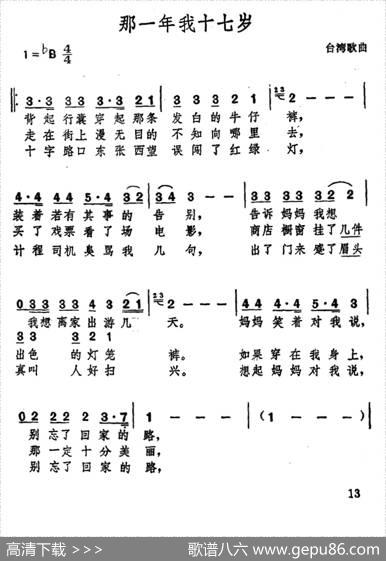 那一年我十七岁
1=♭B 4/4
台湾歌曲
3·3 3 3 3·3 21 3 3 3 21 2 - - -
背起行囊穿起那条 发白的牛仔 裤,
走在街上漫无目的 不知向哪里 去,
十字路口东张西望 误闯了红绿 灯,
4·4 44 5·4 32 3 - - - 3 33 33 32
装着若有其事的 告别, 告诉妈妈我想
买了戏票看了场 电影, 商店橱窗挂了几件
计程司机臭骂我 几句, 出了门来蹙了眉头
0333 33 43 21 2 - - - 44 44 5·4 3
我想离家出游几 天。 妈妈笑着对我说,
33 3 32 1
出色的灯笼 裤。 如果穿在我身上,
真叫人好扫 兴。 想起妈妈对我说,
02 22 2 3·7 1 - - - (1 - - -)
别忘了回家的 路,
那一定十分美 丽,
别忘了回家的 路,
13
高清下载 >>>
歌谱八六 www.gepu86.com